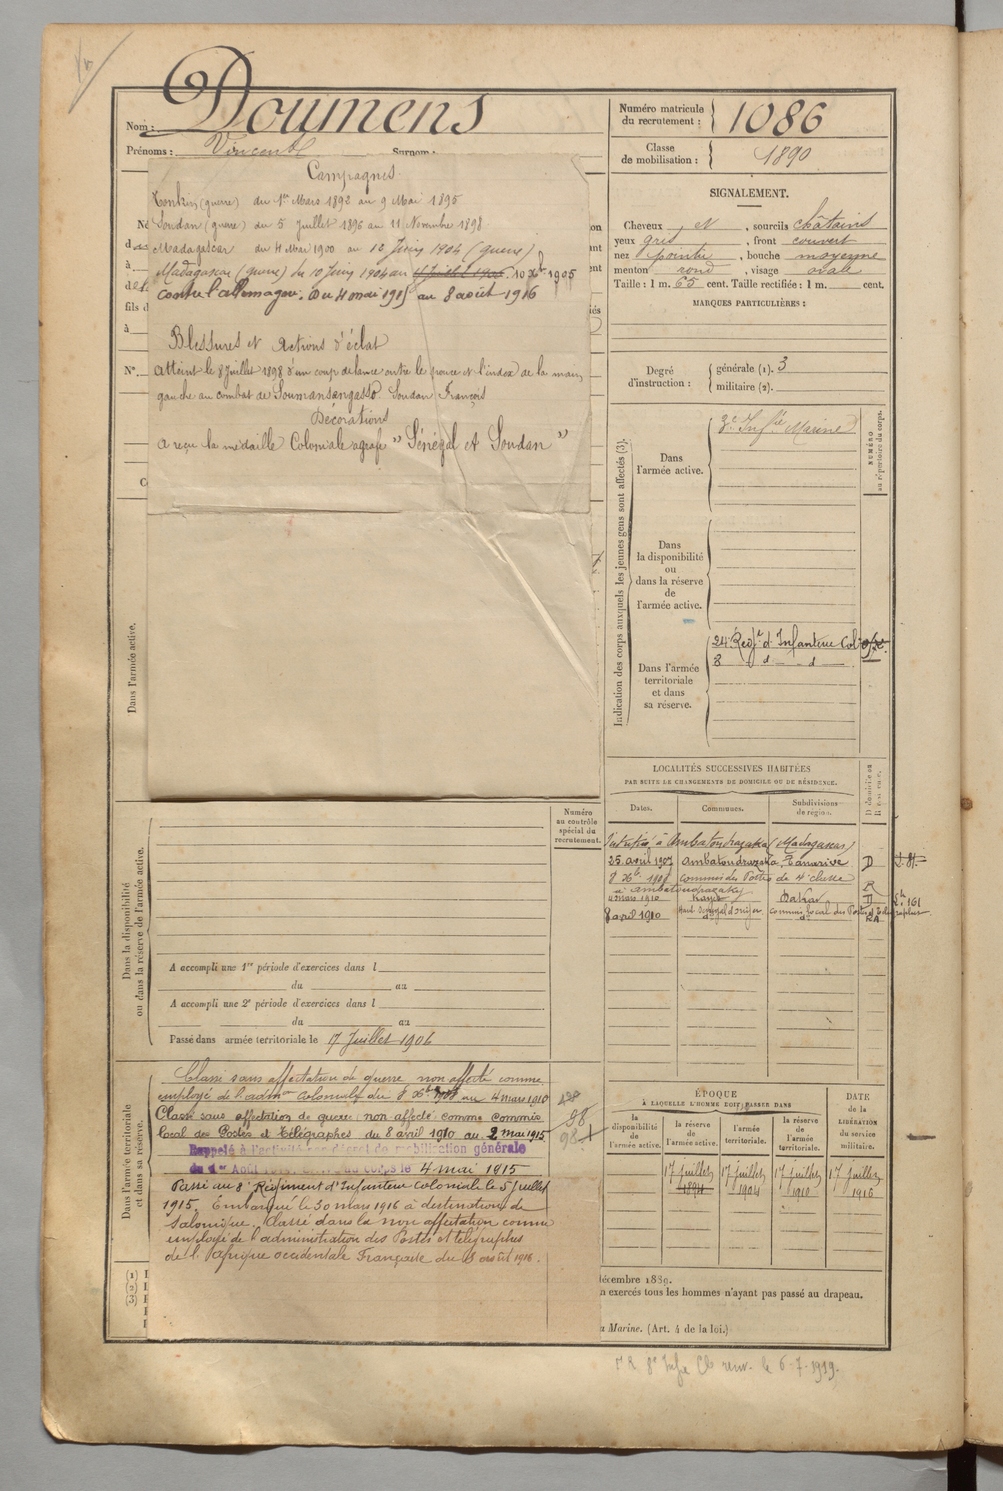 Nom : Doumens
Prénoms : Vincent Surnom :
Campagnes
Tonkin (guerre) du 1er Mars 1892 au 9 Mai 1895
Soudan (guerre) du 5 Juillet 1896 au 11 Novembre 1898
Madagascar du 4 Mai 1900 au 12 Juin 1904 (guerre)
Madagascar (guerre) du 10 Juin 1904 au 10 Xbre 1905
contre l'allemagne. Du 4 mai 1915 au 8 août 1916
Blessures et Actions d'éclat
Atteint le 8 Juillet 1898 d'un coup de lance entre le pouce et l'index de la main
gauche au combat de Soumansangasso Soudan Français
Décorations
a reçu la médaille Coloniale agrafe "Sénégal et Soudan"
Né
à
fils d
à
N°
Dans l'armée active.
Numéro matricule
du recrutement : 1086
Classe
de mobilisation : 1890
SIGNALEMENT.
Cheveux et , sourcils châtains
yeux gris , front couvert
nez pointu , bouche moyenne
menton rond , visage ovale
Taille : 1 m. 65 cent. Taille rectifiée : 1 m. cent.
MARQUES PARTICULIÈRES :
Degré
d'instruction :
générale (1). 3
militaire (2).
Indication des corps auxquels les jeunes gens sont affectés (3).
NUMÉRO
au répertoire du corps.
Dans
l'armée active.
3e Infie Marine
Dans
la disponibilité
ou
dans la réserve
de
l'armée active.
Dans l'armée
territoriale
et dans
sa réserve.
24 Regt d'Infanterie Col
8 d d
LOCALITÉS SUCCESSIVES HABITÉES
PAR SUITE DE CHANGEMENTS DE DOMICILE OU DE RÉSIDENCE.
Dates.
Communes.
Subdivisions
de région.
à Ambatondrazaka (Madagascar)
25 avril 1907 Ambatondrazaka Tananarive D
commis des Postes de 4e classe
à ambatondrazaka R
mars 1910 Kayes Dakar D
8 avril 1910 Haut Sénégal et Niger commis local des Postes et Télégraphes
161
Dans la disponibilité
ou dans la réserve de l'armée active.
Numéro
au contrôle
spécial du
recrutement.
A accompli une 1re période d'exercices dans l
du au
A accompli une 2e période d'exercices dans l
du au
Passé dans armée territoriale le 17 Juillet 1906
Dans l'armée territoriale
et dans sa réserve.
Classé sans affectation de guerre non affecté comme
employé de l'admon coloniale du 8 Xbre au 4 mars 1910
Classé sans affectation de guerre : non affecté comme commis
local des Postes et Télégraphes du 8 avril 1910 au 2 mai 1915
98
Rappelé à l'activité décret de mobilisation générale
du 1er Août au corps le 4 mai 1915
Passé au 8e Régiment d'Infanterie coloniale le 5 Juillet
1915. Embarqué le 30 mars 1916 à destination de
Salonique. Classé dans la non affectation comme
employé de l'administration des Postes et télégraphes
de l'afrique occidentale Française du 8 août 1916.
ÉPOQUE
À LAQUELLE L'HOMME DOIT PASSER DANS
la
disponibilité
de
l'armée active.
la réserve
de
l'armée active.
l'armée
territoriale.
la réserve
de
l'armée
territoriale.
DATE
de la
LIBÉRATION
du service
militaire.
17 juillet 1894
17 juillet 1904
17 juillet 1910
17 juillet 1916
(1)
(2)
(3)
décembre 1889.
exercés tous les hommes n'ayant pas passé au drapeau.
Marine. (Art. 4 de la loi.)
8e Infie Cle renv. le 6-7-1919.